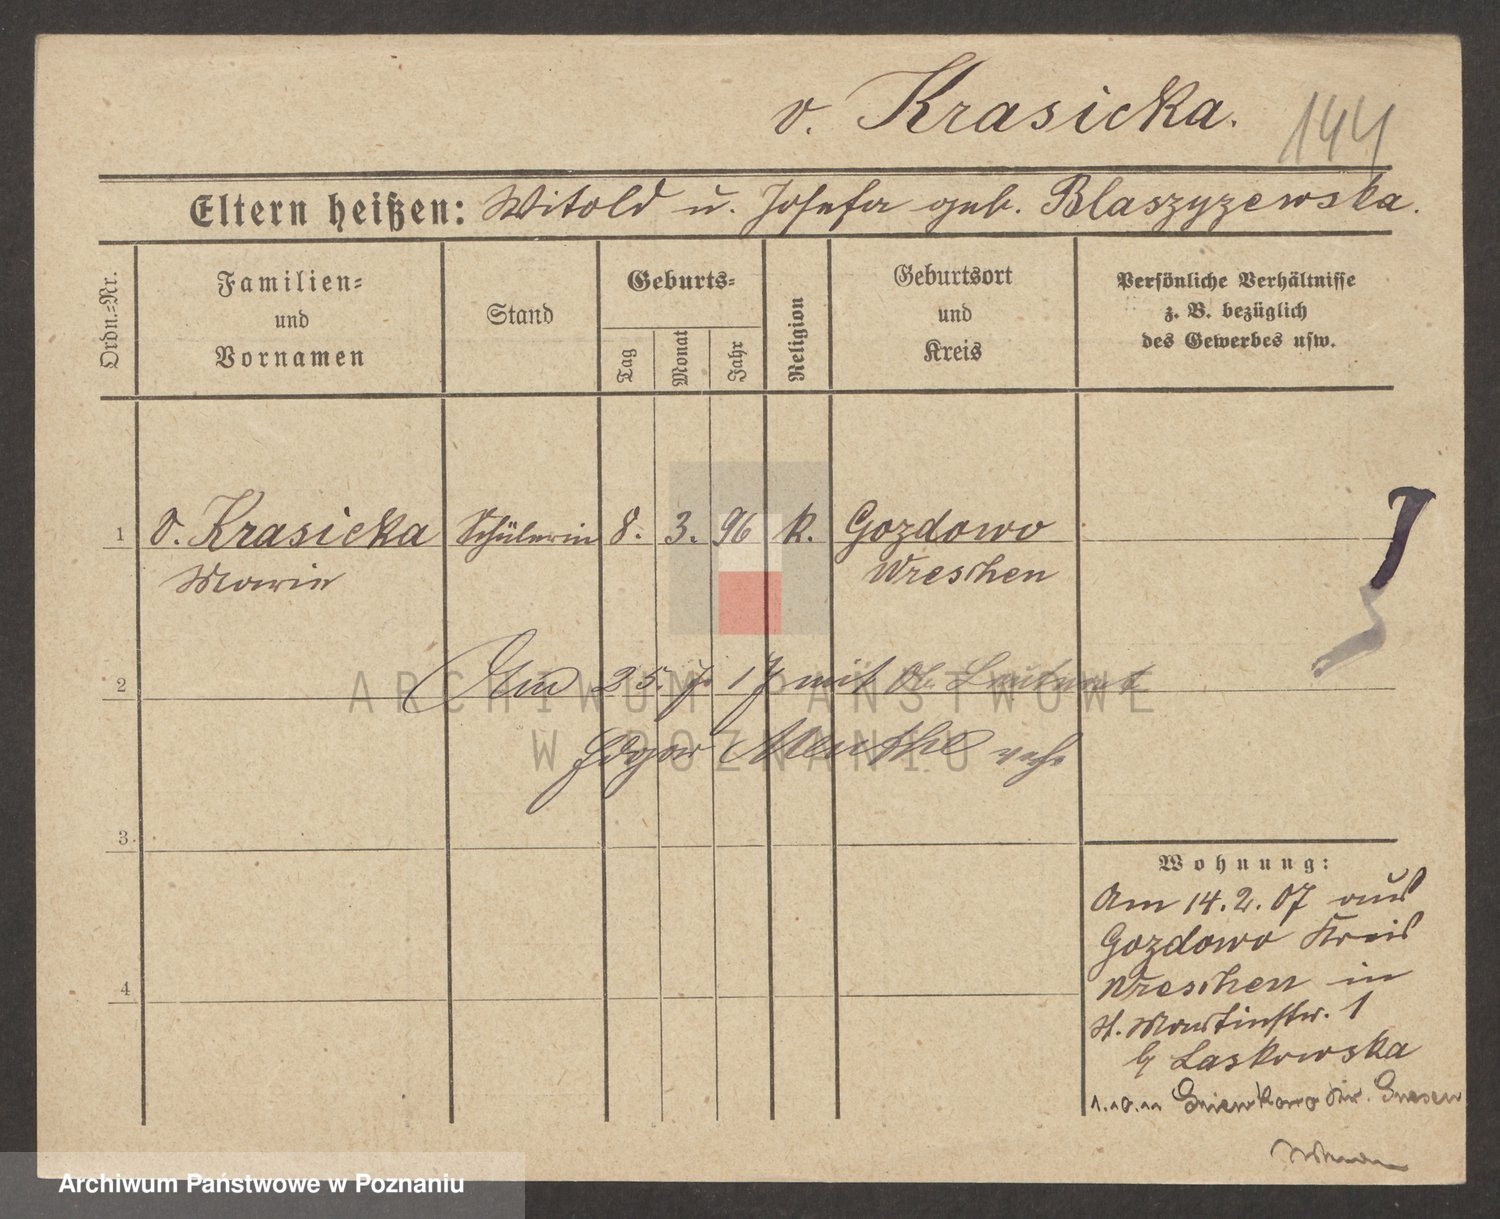 v. Krasicka. 144
Eltern heißen: Witold u. Josefa geb. Blaszyzewska.
Ordn.-Nr.
Familien-
und
Vornamen
Stand
Geburts-
Tag
Monat
Jahr
Religion
Geburtsort
und
Kreis
Persönliche Verhältnisse
z. B. bezüglich
des Gewerbes usw.
1 v. Krasicka Schülerin 8. 3. 96 k. Gozdowo
Marie Wreschen
2 Am 25. 7. 17 mit Leutnant
Edgar Menthe
3
4
Wohnung:
Am 14.2.07 aus
Gozdowo Kreis
Wreschen in
St. Martinstr. 1
b/ Laskowska
1.10.11 Gnienkowo Kr. Gnesen
ARCHIWUM PAŃSTWOWE
W POZNANIU
Archiwum Państwowe w Poznaniu